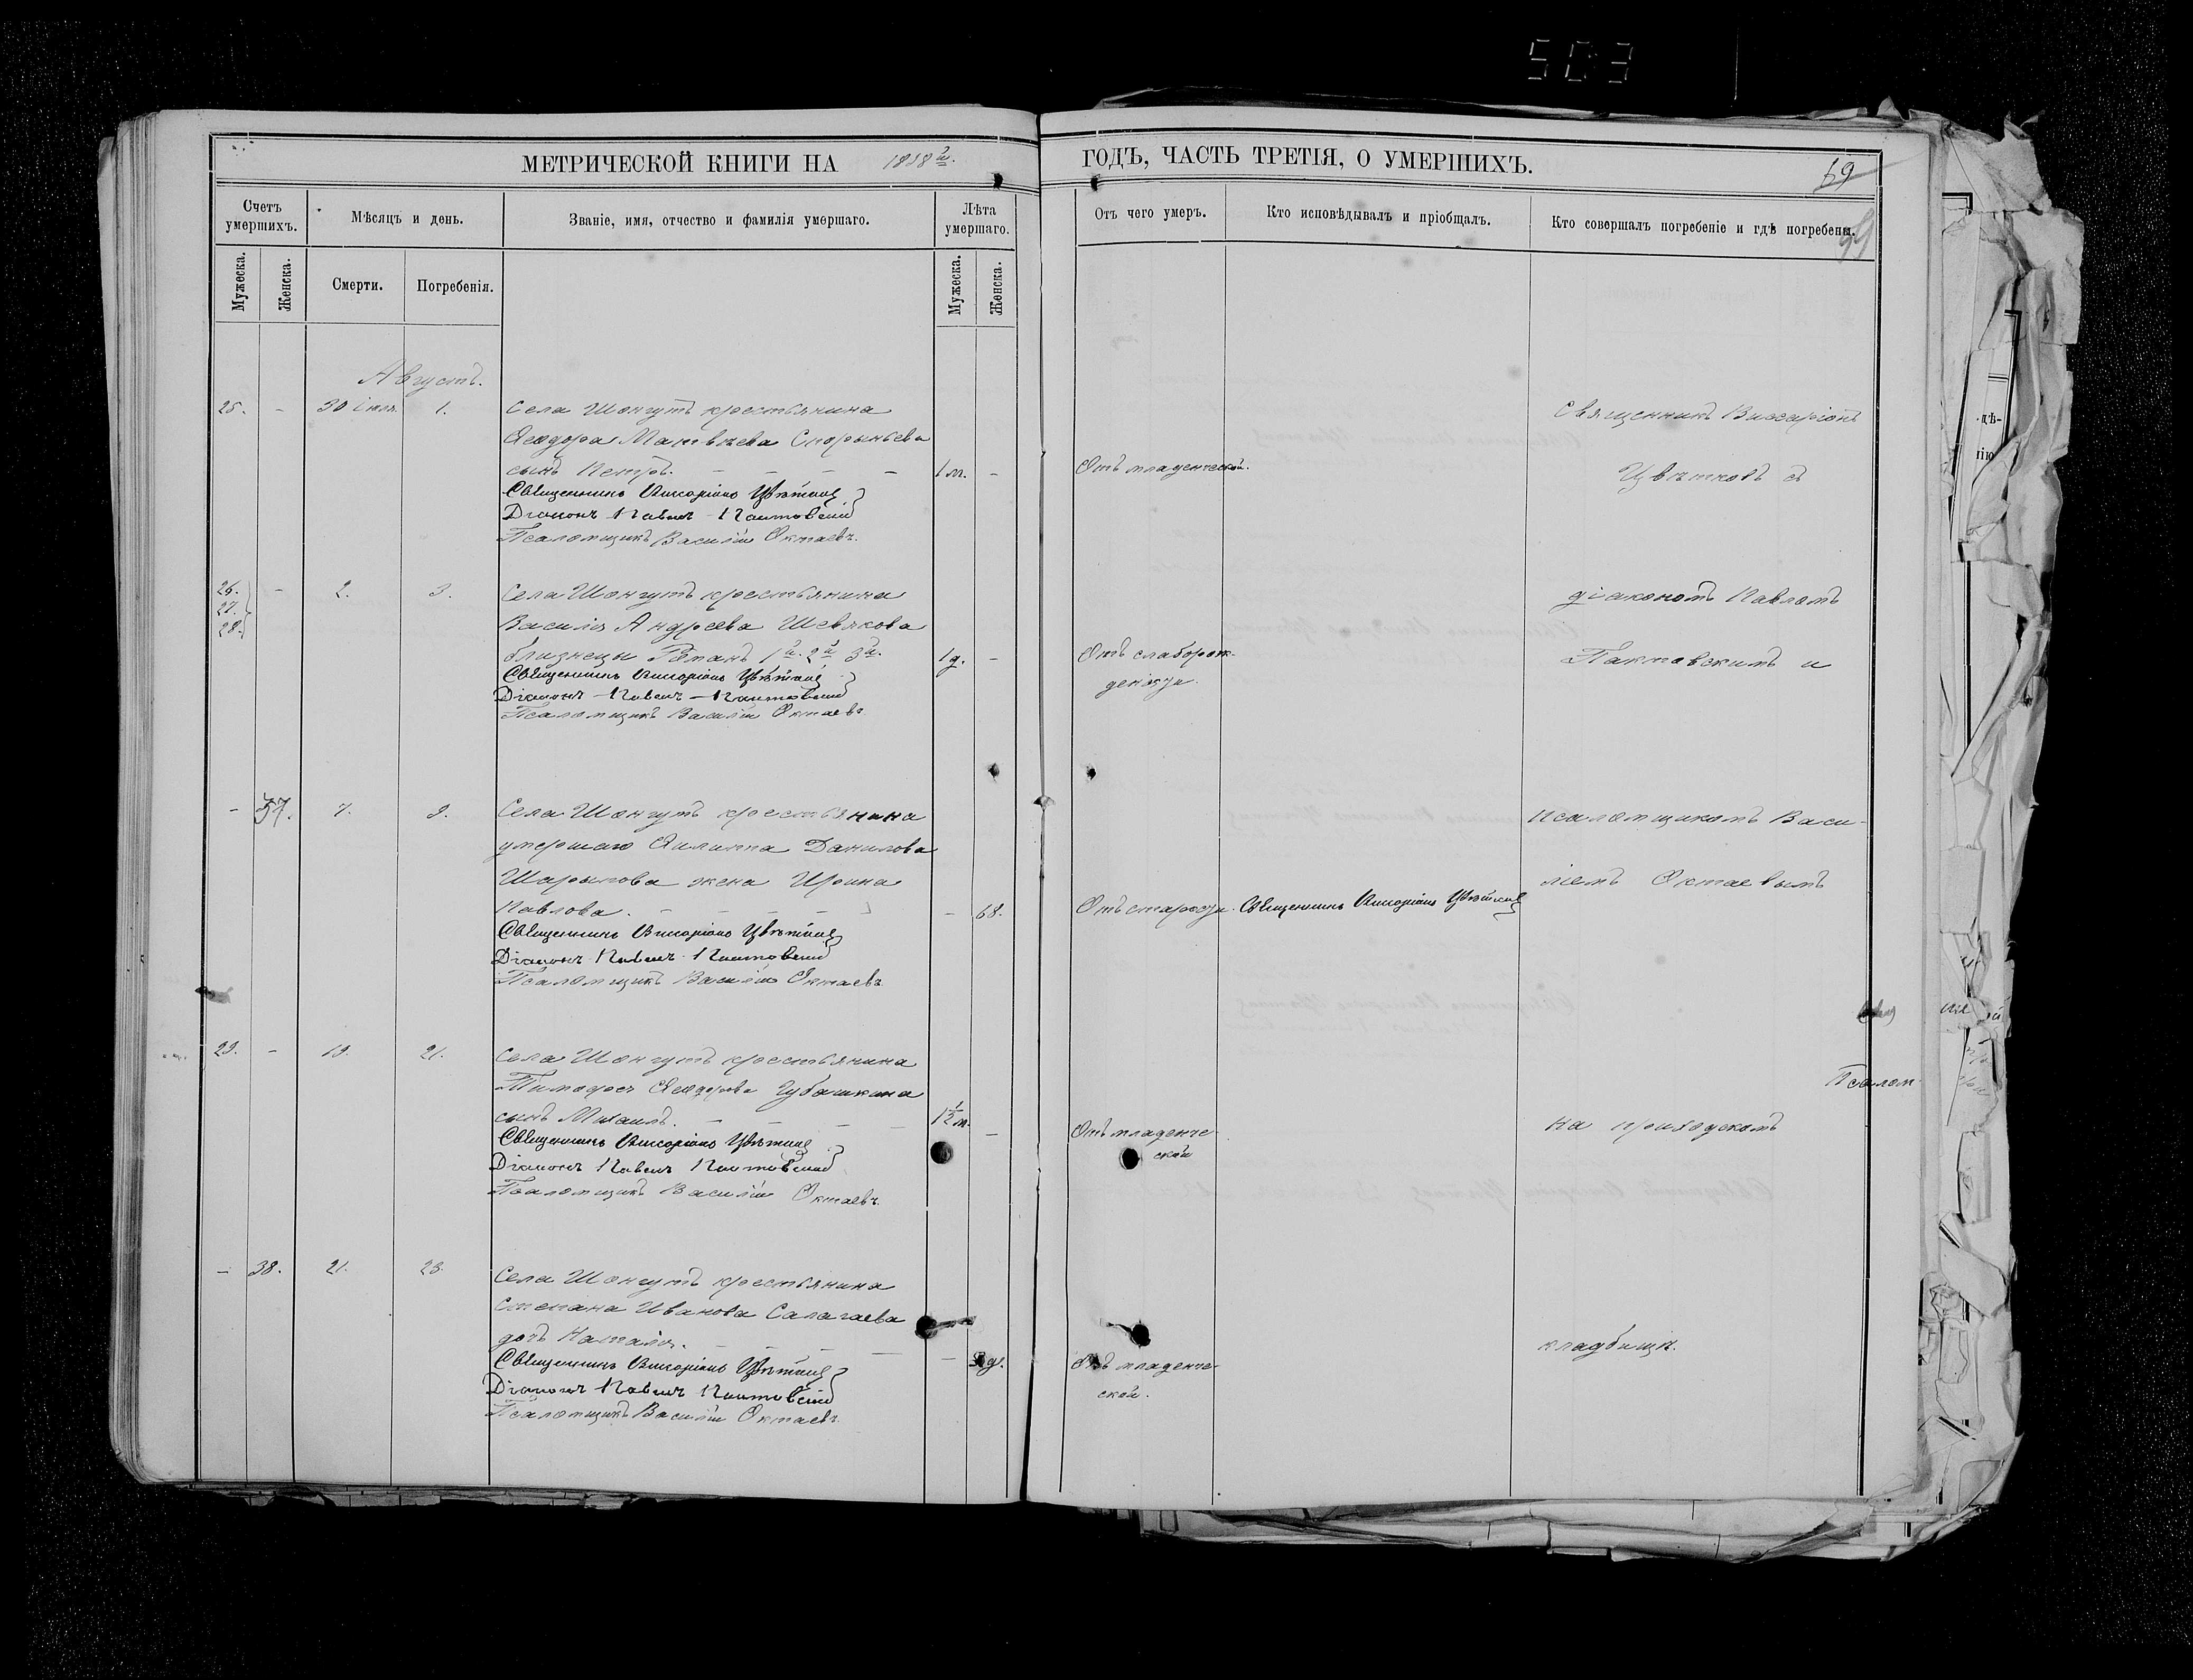 503
МЕТРИЧЕСКОЙ КНИГИ НА 1888й. ГОДЪ, ЧАСТЬ ТРЕТІЯ, О УМЕРШИХЪ.
59
Счетъ умершихъ.
Мѣсяцъ и день.
Званіе, имя, отчество и фамилія умершаго.
Лѣта умершаго.
Отъ чего умеръ.
Кто исповѣдывалъ и пріобщалъ.
Кто совершалъ погребеніе и гдѣ погребены.
Мужеска.
Женска.
Смерти.
Погребенія.
Мужеска.
Женска.
Августъ.
25. - 30 Іюля. 1. Села Шонгутъ крестьянина
Ѳеодора Матвѣева
сынъ Петръ. - - - - 1 м. - Отъ младенческой.
Священникъ Виссаріонъ Цвѣтковъ
Діаконъ Павелъ Пактовскій
Псаломщикъ Василій Октаевъ.
Священникъ Виссаріонъ
Цвѣтковъ съ
26. 27. 28. - 2. 3. Села Шонгутъ крестьянина
Василія Андреева Шевякова
близнецы Романъ 1й. 2й 3й. 1 д. - Отъ слаборож-
Священникъ Виссаріонъ Цвѣтковъ
Діаконъ Павелъ Пактовскій
Псаломщикъ Василій Октаевъ.
діакономъ Павломъ
Пактовскимъ и
- 37. 7. 9. Села Шонгутъ крестьянина
умершаго Филиппа Данилова
Шарыпова жена Ирина
Павлова. - - - - - 68. Отъ старости. Священникъ Виссаріонъ Цвѣтковъ
Священникъ Виссаріонъ Цвѣтковъ
Діаконъ Павелъ Пактовскій
Псаломщикъ Василій Октаевъ
псаломщикомъ Васи-
ліемъ Октаевымъ
29. - 19. 21. Села Шонгутъ крестьянина
Тимофея Ѳеодорова Губашкина
сынъ Михаилъ. - - - - 1½ м. - Отъ младенче-
ской
Священникъ Виссаріонъ Цвѣтковъ
Діаконъ Павелъ Пактовскій
Псаломщикъ Василій Октаевъ.
Псалом
на приходскомъ
- 38. 21. 23. Села Шонгутъ крестьянина
Степана Иванова Салагаева
дочь Наталія. - - - - - Отъ младенче-
ской.
Священникъ Виссаріонъ Цвѣтковъ
Діаконъ Павелъ Пактовскій
Псаломщикъ Василій Октаевъ.
кладбищѣ.